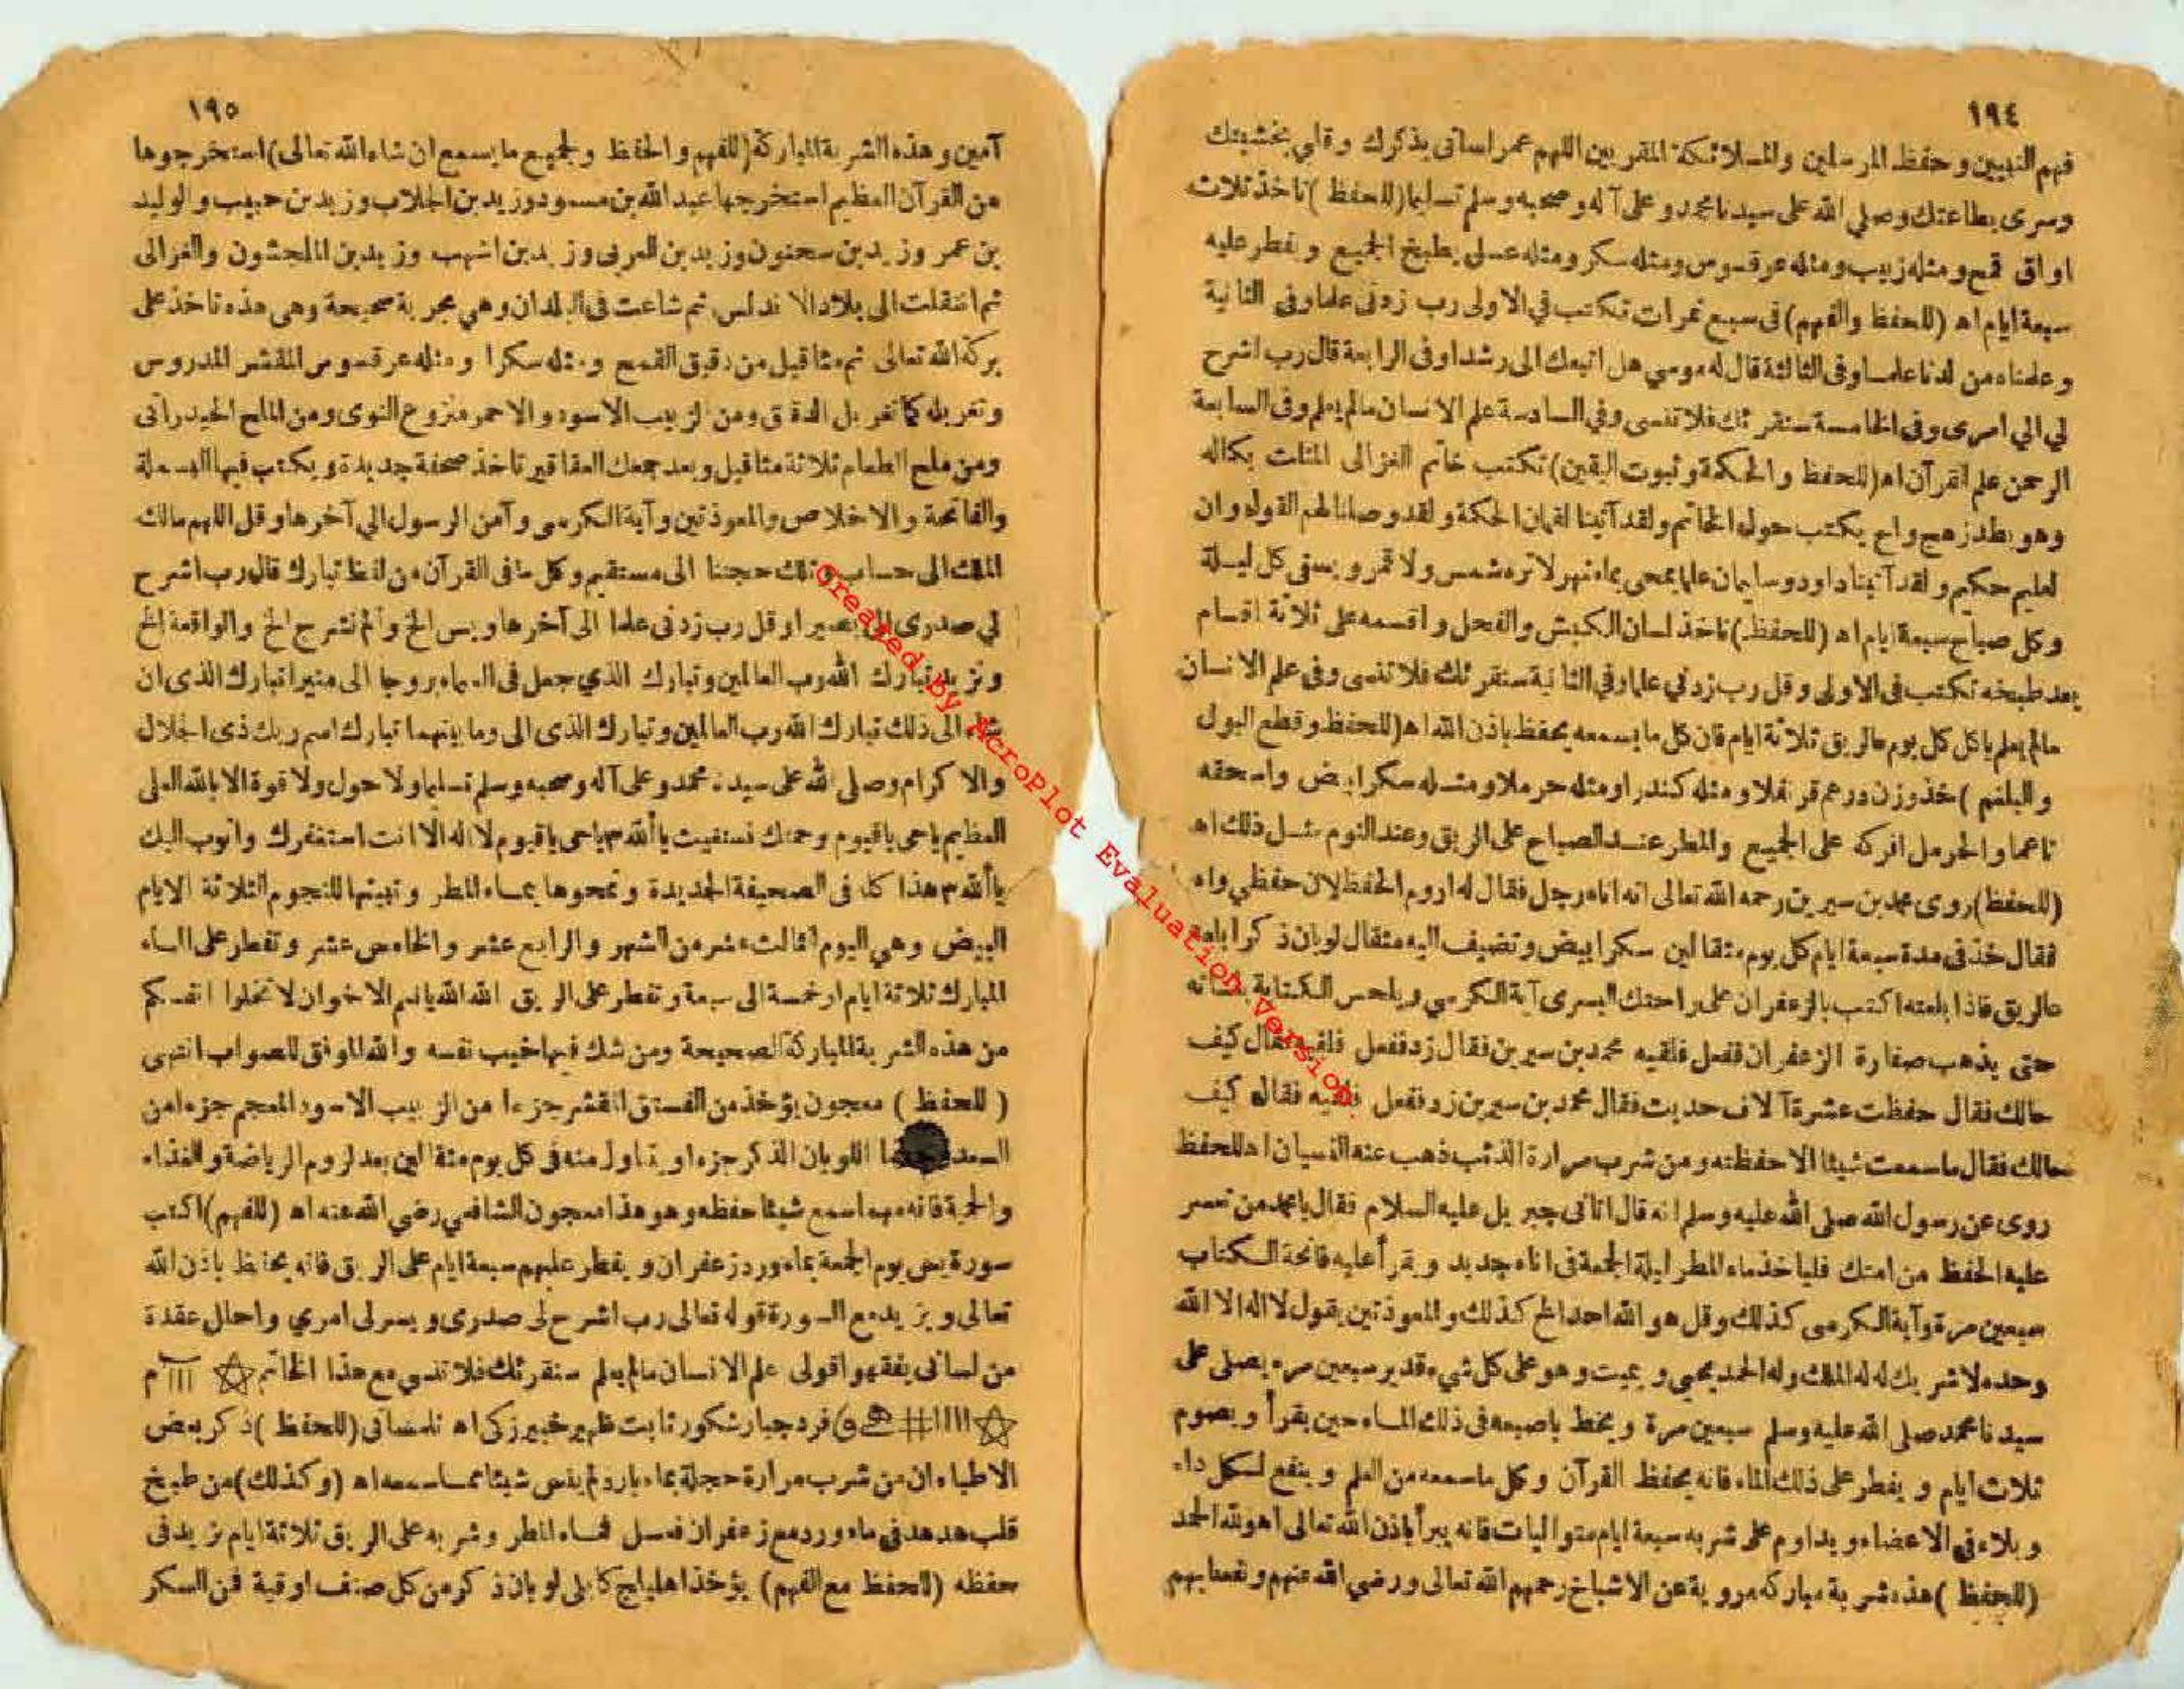 ١٩٤
فهم النبيين وحفظ المرسلين والملائكة المقربين اللهم عمر لساني بذكرك وقلبي بخشيتك
وسرى بطاعتك وصلي الله على سيدنا محمد وعلى آله وصحبه وسلم تسليما (للحفظ) تاخذ ثلاث
اواق قمح ومثله زبيب ومثله عرقسوس ومثله سكر ومثله عسل يطبخ الجميع ويفطر عليه
سبعة ايام اه (للحفظ والفهم) فى سبع تمرات تكتب في الاولى رب زدنى علما وفى الثانية
وعلمناه من لدنا علما وفى الثالثة قال له موسي هل اتبعك الى رشدا وفى الرابعة قال رب اشرح
لي الي امرى وفى الخامسة سنقرئك فلا تنسى وفي السادسة علم الانسان مالم يعلم وفى السابعة
الرحمن علم القرآن اه (للحفظ والحكمة وثبوت اليقين) تكتب خاتم الغزالى المثلث بكماله
وهو بطد زهج واح يكتب حوله الخاتم ولقد آتينا لقمان الحكمة ولقد وصلنا لهم القول وان
لعليم حكيم ولقد آتينا داود وسليمان علما يمحى بماء نهر لاتره شمس ولا قمر ويسقى كل ليلة
وكل صباح سبعة ايام اه (للحفظ) تاخذ لسان الكبش والفحل واقسمه على ثلاثة اقسام
بعد طبخه تكتب فى الاولى وقل رب زدني علما وفي الثانية سنقرئك فلا تنسى وفى علم الانسان
مالم يعلم ياكل كل يوم عالريق ثلاثة ايام فان كل مايسمعه يحفظ باذن الله اه (للحفظ وقطع البول
والبلغم) خذ وزن درهم قرنفلا ومثله كندرا ومثله حرملا ومثله سكرا بيض واسحقه
ناعما والحرمل افركه على الجميع والمطر عند الصباح على الريق وعند النوم مثل ذلك اه
(للحفظ) روى محمد بن سيرين رحمه الله تعالى انه اتاه رجل فقال له اروم الحفظ لان حفظي واه
فقال خذ فى مدة سبعة ايام كل يوم مثقالين سكرا بيض وتضيف اليه مثقال لوبان ذكر ابلعه
عالريق فاذا بلعته اكتب بالزعفران على راحتك اليسرى آية الكرسي ويلحس الكتابة بلسانه
حتى يذهب صفارة الزعفران ففعل فلقيه محمد بن سيرين فقال زد ففعل فلقيه فقال كيف
حالك فقال حفظت عشرة آلاف حديث فقال محمد بن سيرين زد ففعل فلقيه فقال كيف
حالك فقال ماسمعت شيئا الا حفظته ومن شرب مرارة الذئب ذهب عنه النسيان اه للحفظ
روى عن رسول الله صلى الله عليه وسلم انه قال اتانى جبريل عليه السلام فقال يامحمد من تعسر
عليه الحفظ من امتك فلياخذ ماء المطر ليلة الجمعة فى اناء جديد ويقرأ عليه فاتحة الكتاب
سبعين مرة وآية الكرسى كذلك وقل هو الله احد الخ كذلك والمعوذتين يقول لااله الا الله
وحده لاشريك له له الملك وله الحمد يحيى ويميت وهو على كل شيء قدير سبعين مرة يصلى على
سيدنا محمد صلى الله عليه وسلم سبعين مرة ويخط باصبعه فى ذلك الماء حين يقرأ ويصوم
ثلاث ايام ويفطر على ذلك الماء فانه يحفظ القرآن وكل ماسمعه من العلم وينفع لكل داء
وبلاء فى الاعضاء ويداوم على شربه سبعة ايام متواليات فانه يبرأ باذن الله تعالى اه ولله الحمد
(للحفظ) هذه شربة مباركه مروية عن الاشياخ رحمهم الله تعالى ورضي الله عنهم ونفعنا بهم
١٩٥
آمين وهذه الشربة المباركة (للفهم والحفظ ولجميع مايسمع ان شاء الله تعالى) استخرجوها
من القرآن العظيم استخرجها عبد الله بن مسعود وزيد بن الجلاب وزيد بن حبيب والوليد
بن عمر وزيد بن سحنون وزيد بن العربى وزيد بن اشهب وزيد بن الماجشون والغزالى
ثم انتقلت الى بلاد الاندلس ثم شاعت فى البلدان وهي مجربة صحيحة وهى هذه تاخذ على
بركة الله تعالى ثم مثاقيل من دقيق القمح ومثله سكرا ومثله عرقسوس المقشر المدروس
وتغربله كما تغربل الدقيق ومن الزبيب الاسود والاحمر منزوع النوى ومن الملح الحيدرانى
ومن ملح الطعام ثلاثة مثاقيل وبعد جمعك العقاقير تاخذ صحفة جديدة ويكتب فيها البسملة
والفاتحة والاخلاص والمعوذتين وآية الكرسى وآمن الرسول الي آخرها وقل اللهم مالك
الملك الى حساب وتلك حجتنا الى مستقيم وكل مافى القرآن من لفظ تبارك قال رب اشرح
لي صدرى الى بصيرا وقل رب زدنى علما الى آخرها ويس الخ والم نشرح الخ والواقعة الخ
وتزيد تبارك الله رب العالمين وتبارك الذي جعل فى السماء بروجا الى منيرا تبارك الذى ان
شاء الى ذلك تبارك الله رب العالمين وتبارك الذى الى وما بينهما تبارك اسم ربك ذى الجلال
والاكرام وصلى الله على سيدنا محمد وعلى آله وصحبه وسلم تسليما ولا حول ولا قوة الا بالله العلى
العظيم ياحى ياقيوم وحمتك نستغيث ياألله ياحى ياقيوم لااله الا انت استغفرك واتوب اليك
ياألله هذا كله فى الصحيفة الجديدة وتمحوها بماء المطر وتبيتها للنجوم الثلاثة الايام
البيض وهي اليوم الثالث عشر من الشهر والرابع عشر والخامس عشر وتفطر على الماء
المبارك ثلاثة ايام او خمسة الى سبعة وتفطر على الريق الله الله ياايها الاخوان لا تخلوا انفسكم
من هذه الشربة المباركة الصحيحة ومن شك فيها خيب نفسه والله الموفق للصواب انتهى
(للحفظ) معجون يؤخذ من الفستق المقشر جزءا من الزبيب الاسود المعجم جزءا من
السعد اللوبان الذكر جزءا ويتناول منه فى كل يوم مثقالين بعد لزوم الرياضة والغذاء
والحمية فانه مهما سمع شيئا حفظه وهو هذا معجون الشافعي رضي الله عنه اه (للفهم) اكتب
سورة يس يوم الجمعة بماء ورد زعفران ويفطر عليهم سبعة ايام على الريق فانه يحفظ باذن الله
تعالى ويزيد مع السورة قوله تعالى رب اشرح لى صدرى ويسرلى امري واحلل عقدة
من لسانى يفقهوا قولى علم الانسان مالم يعلم سنقرئك فلا تنسى مع هذا الخاتم ااا م
اااا # فرد جبار شكور ثابت ظهير خبير زكى اه تلمسانى (للحفظ) ذكر بعض
الاطباء ان من شرب مرارة حجلة بماء بارد لم ينس شيئا مما سمعه اه (وكذلك) من طبخ
قلب هدهد فى ماء ورد مع زعفران فعسل فماء المطر وشربه على الريق ثلاثة ايام تزيد فى
حفظه (للحفظ مع الفهم) يؤخذ اهليلج كابلى لوبان ذكر من كل صنف اوقية فن السكر
Created by AcroPlot Evaluation Version